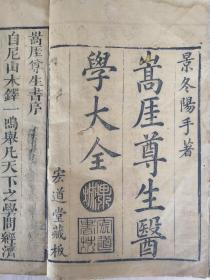 景冬陽手著
嵩厓尊生醫
學大全
宏道堂藏板
嵩厓尊生書序
自尼山木鐸一鳴舉凡天下之學問經濟